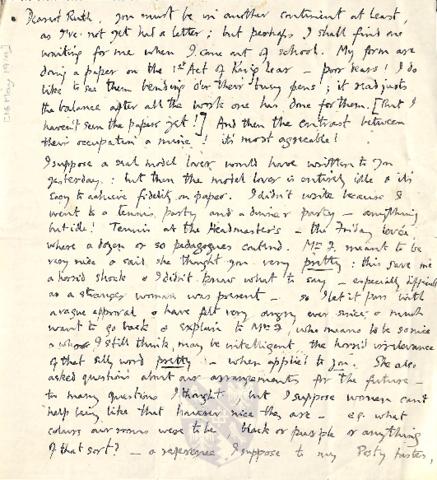 Dearest Ruth, you must be in another continent at least,
as I've not yet had a letter; but perhaps I shall find one
waiting for me when I come out of school. My form are
doing a paper on the 1st Act of King Lear – poor dears! I do
like to see them bending over their busy pens; it readjusts
the balance after all the work one has done for them. [But I
haven't seen the papers yet!] And then the contrast between
their occupation & mine! it's most agreeable!
I suppose a real model lover would have written to you
yesterday: but then the model lover is entirely idle & it's
easy to achieve fidelity on paper. I didn't write because I
went to a tennis party and a dinner party – anything
but idle! Tennis at the Headmaster's – the Friday
where a dozen or so pedagogues contend. Mrs F. meant to be
very nice & said she thought you very pretty: this gave me
a horrid shock & I didn't know what to say – especially difficult
as a stranger woman was present – so I let it pass with
a vague approval, & have felt very angry ever since & much
want to go back & explain to Mrs F, who means to be so nice
& whom I still think may be intelligent, the horrid irrelevance
of that silly word pretty – when applied to you. She also
asked questions about our arrangements for the future –
too many questions I thought – but I suppose women can't
help being like that however nice they are – e.g. what
colour our rooms were to be, black or purple or anything
of that sort? – a reference I suppose to my Posty tastes,
[18 May 1914]